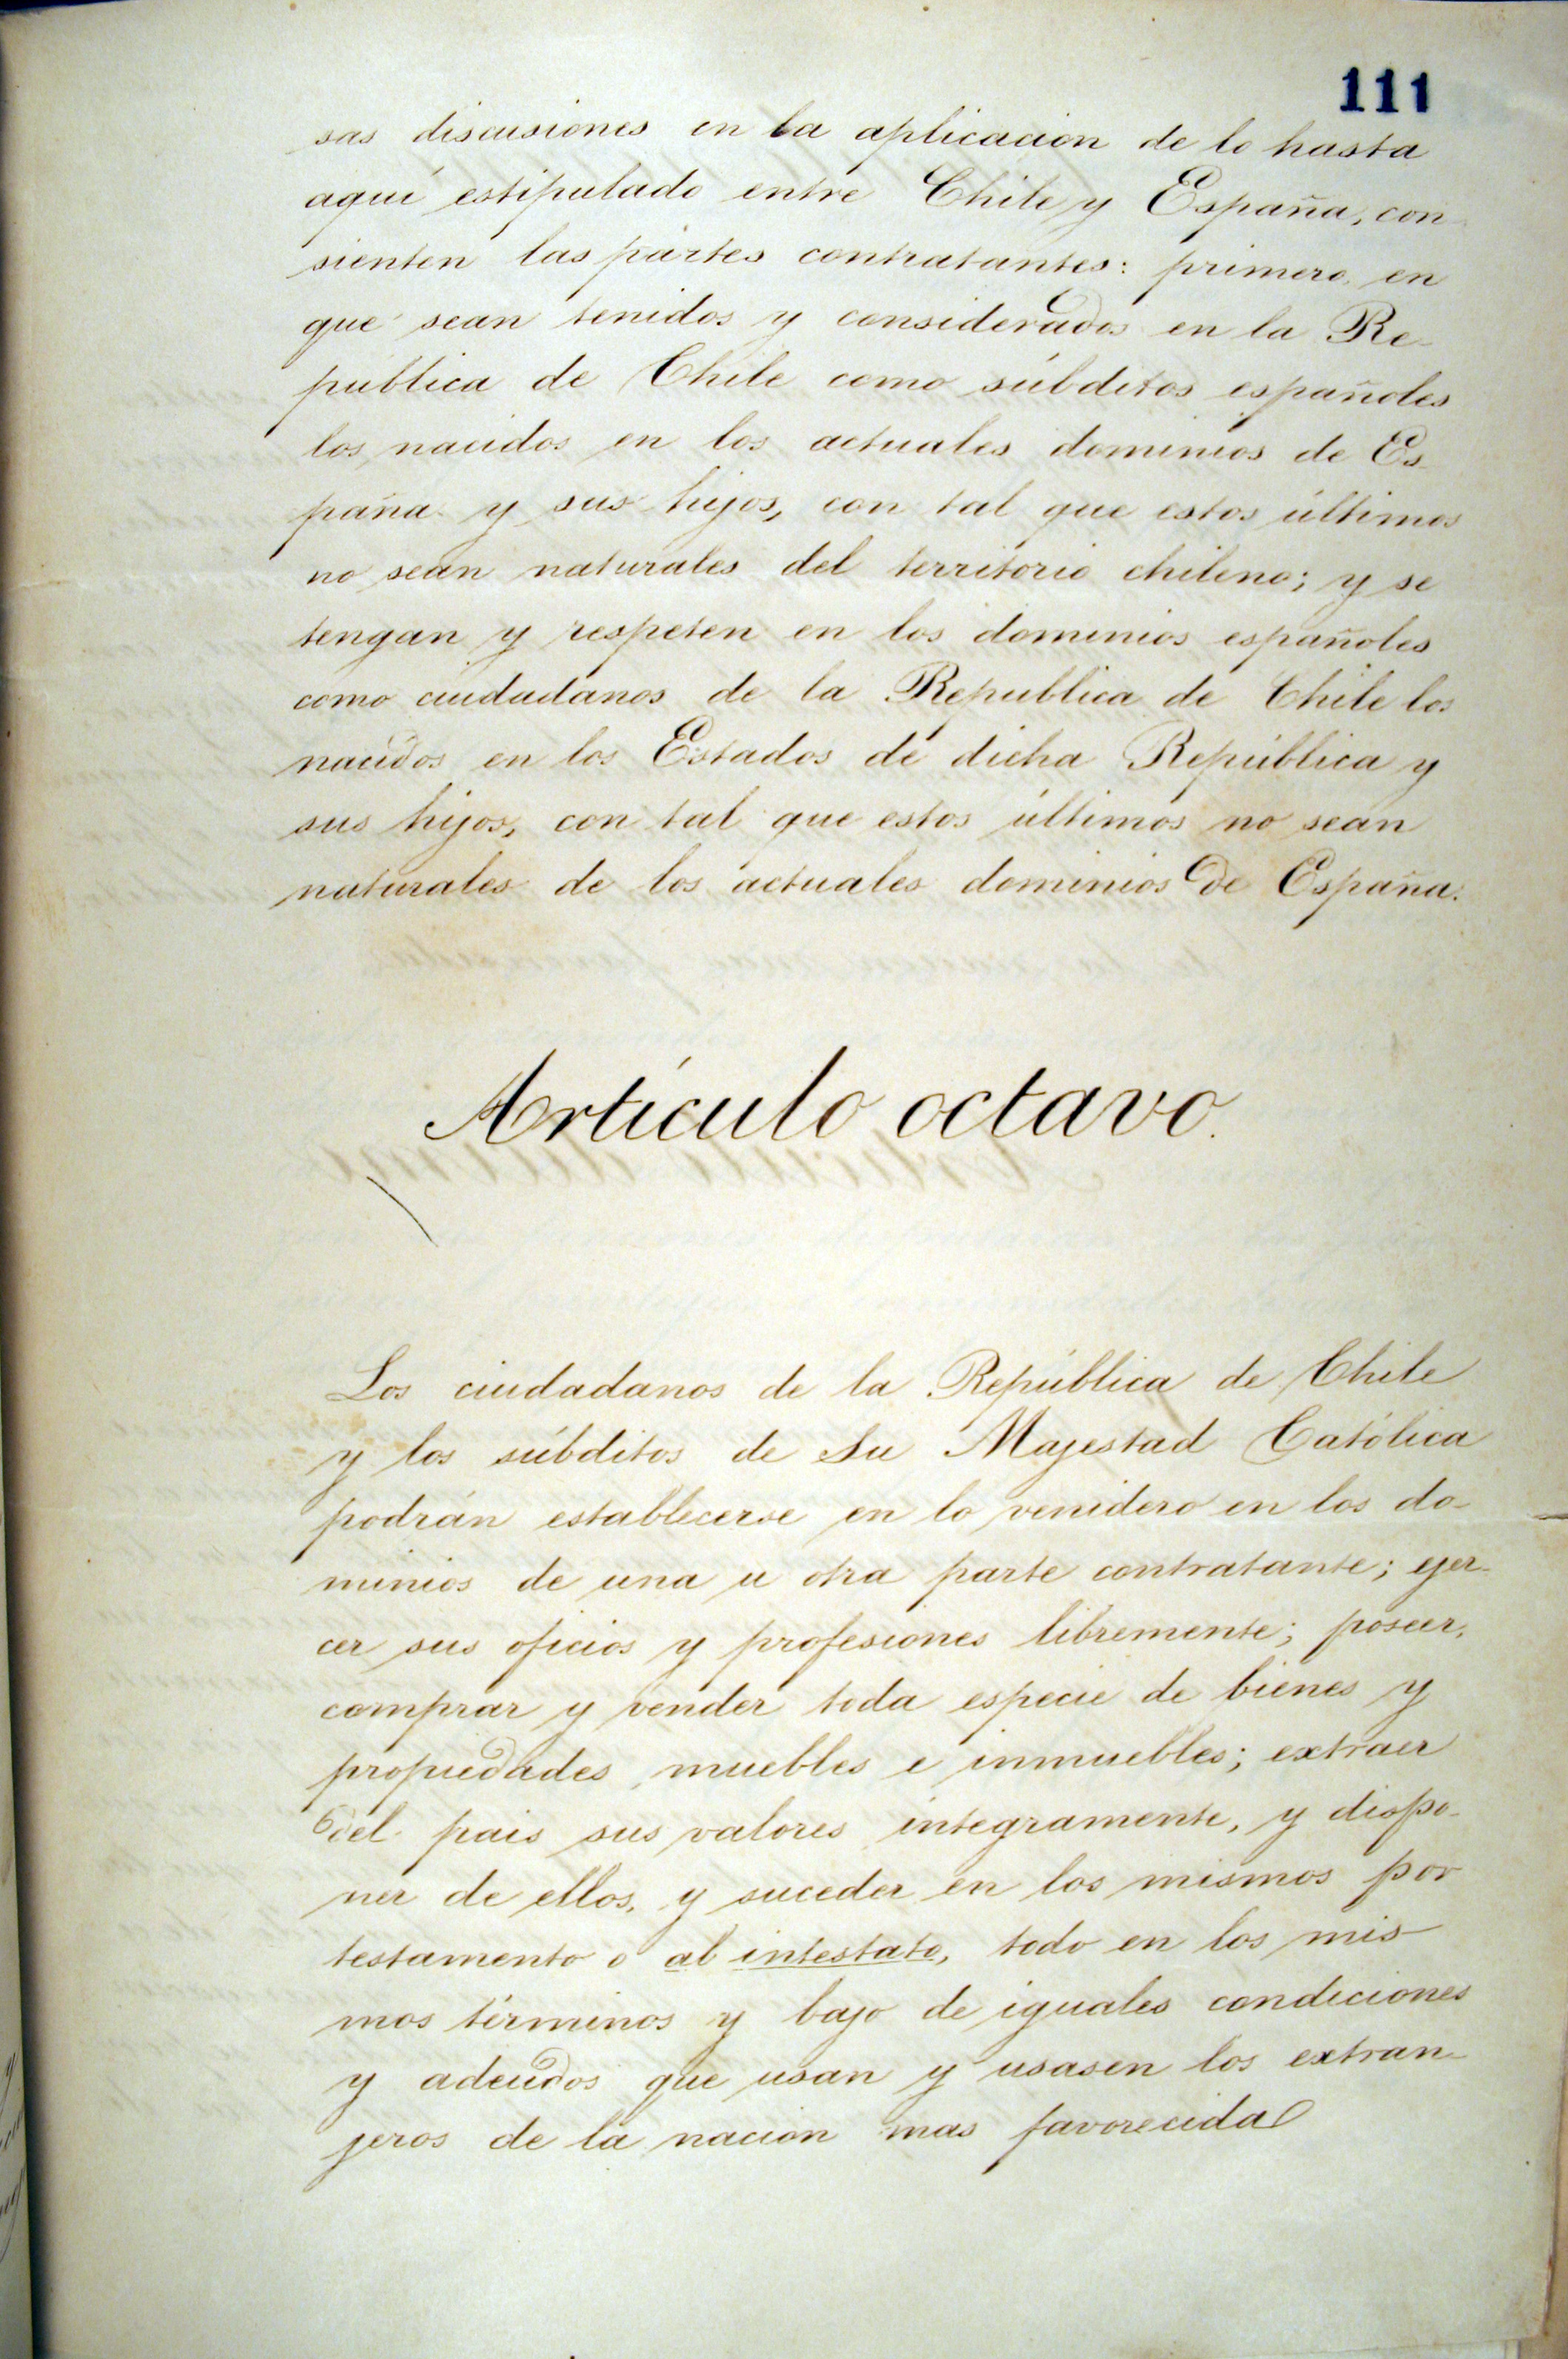 111
sas discusiones en la aplicacion de lo hasta
aquí estipulado entre Chile y España, con
sienten las partes contratantes: primero, en
que sean tenidos y considerados en la Re-
pública de Chile como súbditos españoles
los nacidos en los actuales dominios de Es
paña y sus hijos, con tal que estos últimos
no sean naturales del territorio chileno; y se
tengan y respeten en los dominios españoles
como ciudadanos de la Republica de Chile los
nacidos en los Estados de dicha República y
sus hijos, con tal que estos últimos no sean
naturales de los actuales dominios de España.
Artículo octavo.
Los ciudadanos de la República de Chile
y los súbditos de Su Majestad Católica
podrán establecerse en lo venidero en los do-
minios de una u otra parte contratante; ejer-
cer sus oficios y profesiones libremente; poseer,
comprar y vender toda especie de bienes y
propiedades muebles e inmuebles; extraer
del pais sus valores integramente, y dispo-
ner de ellos, y suceder en los mismos por
testamento o ab intestato, todo en los mis-
mos términos y bajo de iguales condiciones
y adeudos que usan y usasen los extran-
jeros de la nacion mas favorecida